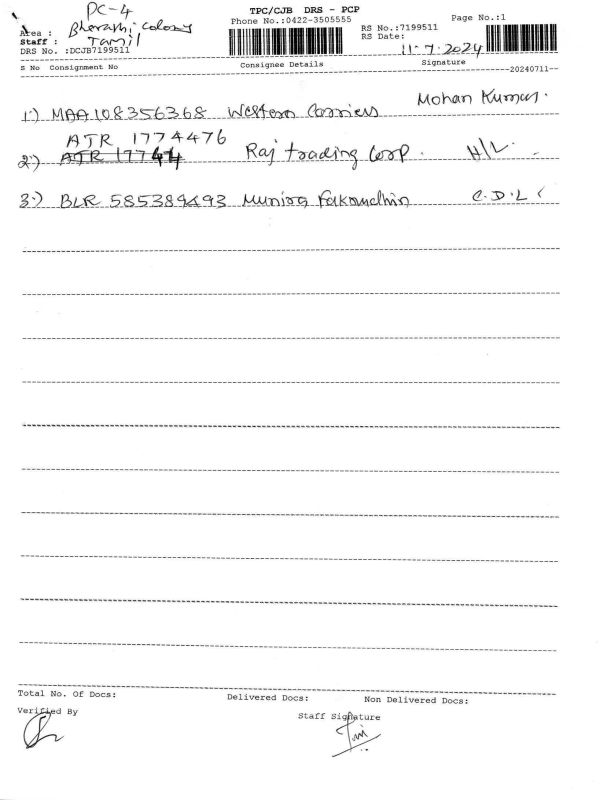 PC-4
TPC/CJB DRS - PCP
Phone No.:0422-3505555
Page No.:1
Area : Bherathi colony
RS No.:7199511
Staff : Tamil
RS Date: 11-7-2024
DRS No. :DCJB7199511
S No Consignment No Consignee Details Signature
20240711
1) MAA108356368 Western Carriers Mohan Kumar.
ATR 1774476
2) ATR 17744 Raj trading Corp. H/L.
3) BLR 585389493 Munira C.D.L
Total No. Of Docs: Delivered Docs: Non Delivered Docs:
Verified By
Staff Signature